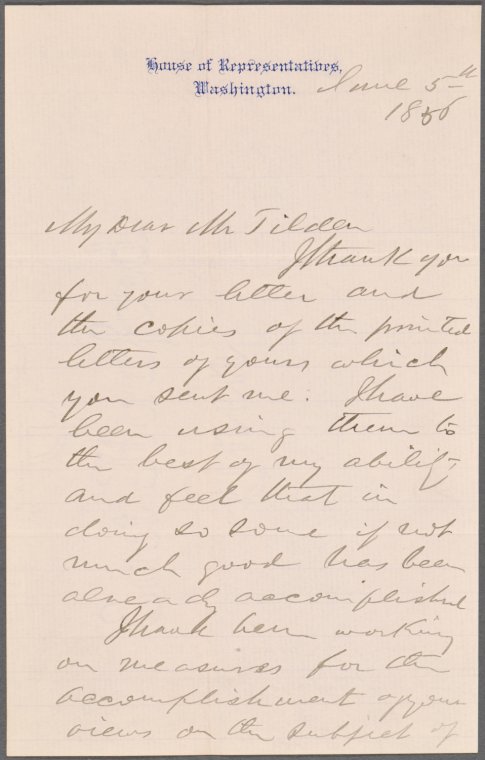 House of Representatives,
Washington.
June 5th
1886
My Dear Mr Tilden
I thank you
for your letter and
the copies of the printed
letters of yours which
you sent me. I have
been using them to
the best of my ability
and feel that in
doing so some if not
much good has been
already accomplished
I have been working
on measures for the
accomplishment of your
views on the subject of